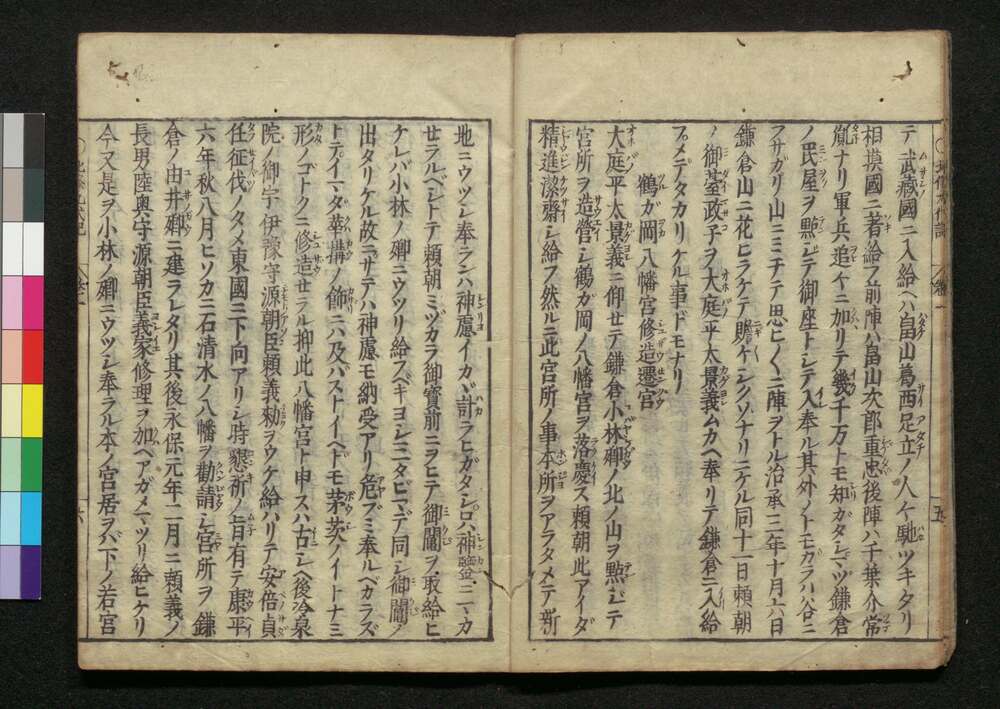 テ武藏國ニ入給ヘハ畠山葛西足立ノ人々馳ツキタリ
相摸國ニ著給フ前陣ハ畠山次郎重忠後陣ハ千葉介常
胤ナリ軍兵追々ニ加リテ幾千万トモ知ガタシマヅ鎌倉
ノ民屋ヲ點シテ御座トシテ入奉ル其外ノトモガラハ谷ニ
フサガリ山ニミチテ思ヒ〱ニ陣ヲトル治承三年十月六日
鎌倉山ニ花ヒラケテ賑々シクソナリニケル同十一日頼朝
ノ御䑓政子ヲ大庭平太景義ムカヘ奉リテ鎌倉ニ入給
フメデタカリケル事ドモナリ
鶴が岡八幡宮修造遷宮
大庭平太景義ニ仰セテ鎌倉小林郷ノ北ノ山ヲ點ジテ
宮所ヲ造營シ鶴ガ岡ノ八幡宮ヲ落慶ス頼朝此アイダ
精進潔齋シ給フ然ルニ此宮所ノ事本所ヲアラタメテ新
五
地ニウツシ奉ランハ神慮イカヾ計ラヒガタシ只ハ神鑒ニマカ
セラルベシトテ頼朝ミヅカラ御寳前ニヲヒテ御䦰ヲ取給ヒ
ケレバ小林ノ郷ニウツリ給スベキヨシ三タビマデ同シ御䦰ノ
出タリケル故ニサテハ神慮モ納受アリ危ブミ奉ルベカラズ
トテイマダ華搆ノ飾ニハ及バストイヘドモ茅茨ノイトナミ
形ノゴトクニ修造セラル抑此八幡宮ト申スハ古シヘ後冷泉
院ノ御宇伊豫守源朝臣頼義勅ヲウケ給ハリテ安倍貞
任征伐ノタメ東國ニ下向アリシ時懇祈ノ旨有テ康平
六年秋八月ヒソカニ石清水ノ八幡ヲ勸請シ宮所ヲ鎌
倉ノ由井郷ニ建ラレタリ其後永保元年二月ニ頼義ノ
長男陸奥守源朝臣義家修理ヲ加ヘアガメマツリ給ヒケリ
今又是ヲ小林ノ郷ニウツシ奉ラル本ノ宮居ヲバ下ノ若宮